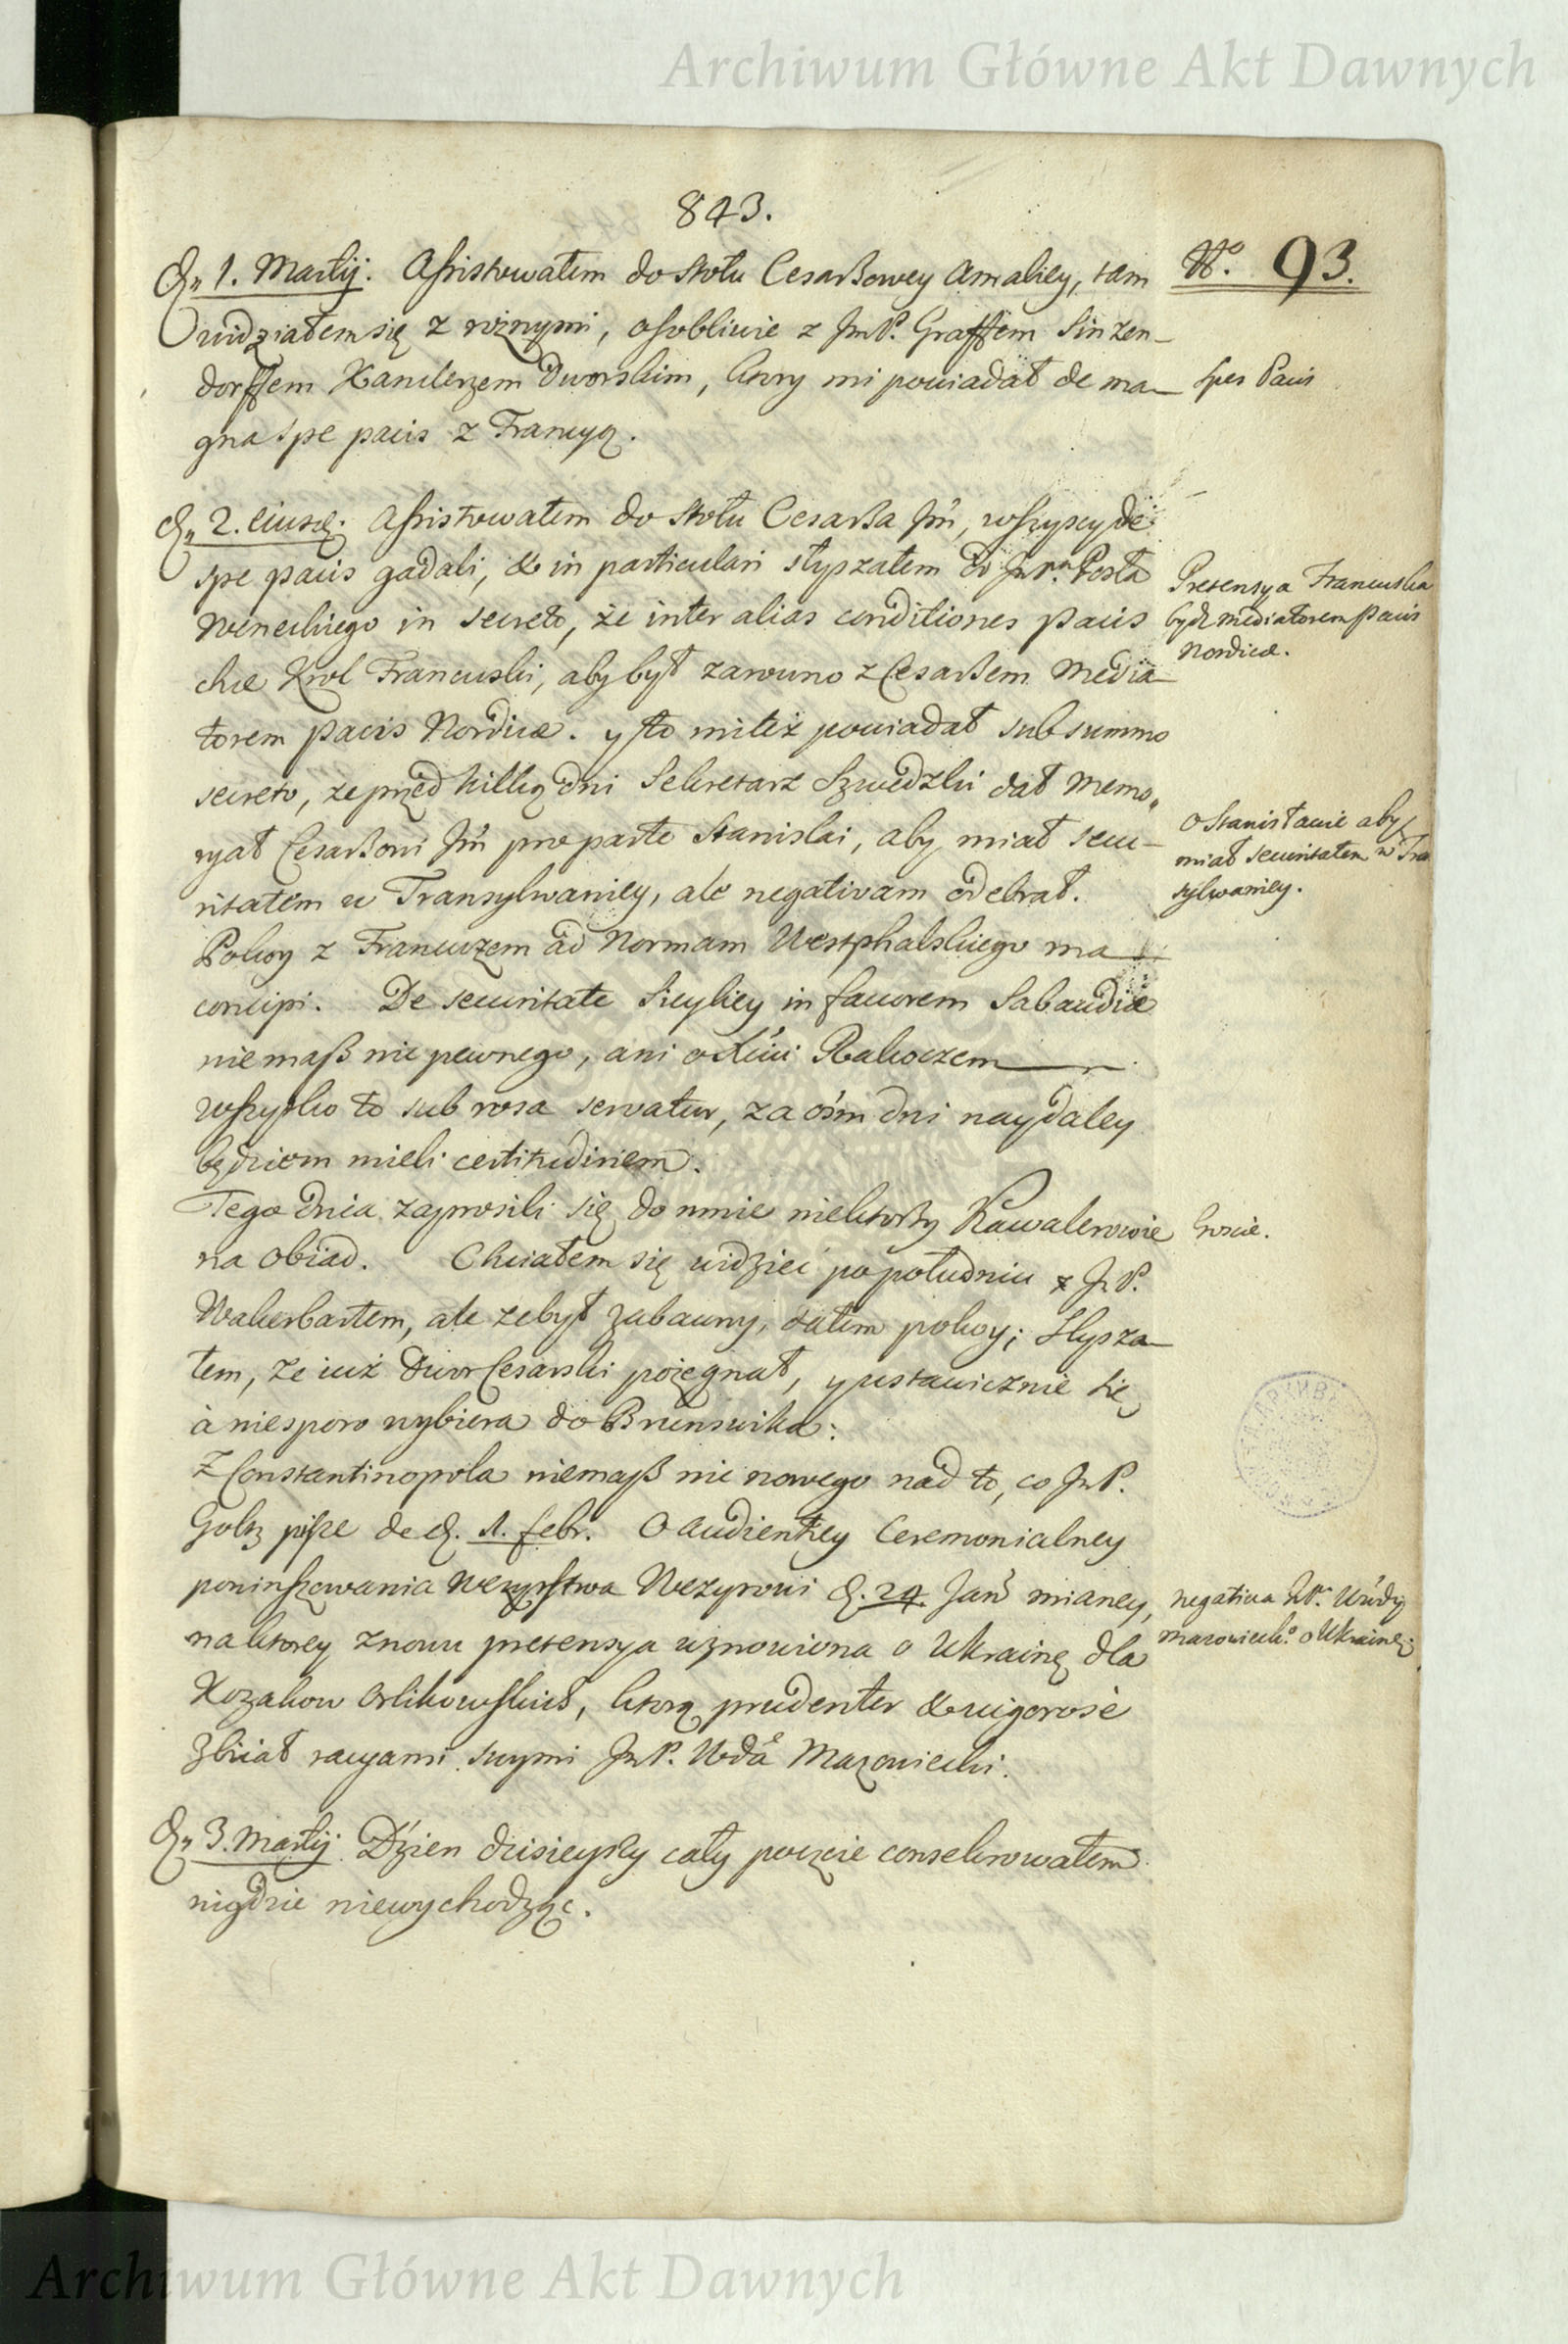 Archiwum Główne Akt Dawnych
843.
No. 93.
D. 1. Martij. Assistowałem do stołu Cesarßowey Amaliey, tam
widziałem się z rożnymi, osobliwie z JmP. Graffem Sinzen-
dorffem Kanclerzem Dworskim, ktory mi powiadał de ma-
gna spe pacis z Francyą.
Spes Pacis
D. 2. eiusd. Assistowałem do stołu Cesarßa Jm̃, wszyscy de
spe pacis gadali, & in particulari słyszałem od JmP. Posła
Weneckiego in secreto, że inter alias conditiones pacis
chce Krol Francuski, aby był zarowno z Cesarßem Media-
torem pacis Nordicæ. y to mi też powiadał sub summo
secreto, że przed kilką dni Sekretarz Szwedzki dał Memo-
ryał Cesarßowi Jm̃ pro parte Stanislai, aby miał secu-
ritatem w Transylwaniey, ale negativam odebrał.
Pretensya Francuska
bydź mediatorem pacis
Nordicæ.
o Stanisławie aby
miał securitatem w Tran
sylwaniey.
Pokoy z Francuzem ad Normam Westphalskiego ma
concipi. De securitate Sicyliey in favorem Sabaudiæ
niemaß nic pewnego, ani o Rakoczem
wszystko to sub rosa servatur, za ośm dni naydaley
będziem mieli certitudinem.
Tego dnia zaprosili się do mnie niektorzy Kawalerowie
na obiad. Chciałem się widzieć po południu z JmP.
Wakerbartem, ale że był zabawny, dałem pokoy; Słysza-
łem, że iuż Dwor Cesarski pożegnał, y ustawicznie się
à niesporo wybiera do Brunswika.
Goście.
Z Constantinopola niemaß nic nowego nad to, co JmP.
Goltz pisze de d. 1. febr. O Audientiey Ceremonialney
powinszowania Wezyrstwa Wezyrowi d. 24. Jan̄ mianey,
na ktorey znowu pretensya wznowiona o Ukrainę dla
Kozakow Orlikowskich, ktorą prudenter & vigorosè
zbiiał racyami swymi JmP. Wdã Mazowiecki.
negativa JP. Wdy
Mazowieck. o Ukrainę.
D. 3. Martij. Dzień dzisieyszy cały poczcie consekrowałem
nigdzie niewychodząc.
Archiwum Główne Akt Dawnych